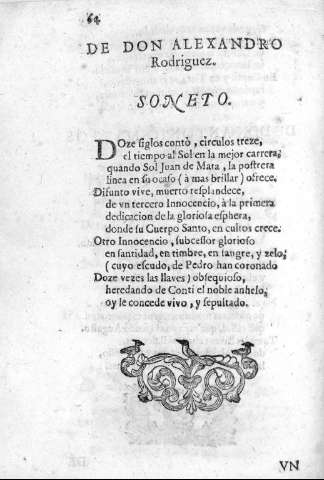 64
DE DON ALEXANDRO
Rodriguez.
SONETO.
DOze siglos contò, circulos treze,
el tiempo al Sol en la mejor carrera;
quando Sol Juan de Mata, la postrera
linea en su ocaso (à mas brillar) ofrece.
Difunto vive, muerto resplandece,
de vn tercero Innocencio, à la primera
dedicacion de la gloriosa esphera,
donde su Cuerpo Santo, en cultos crece.
Otro Innocencio, subcessor glorioso
en santidad, en timbre, en sangre, y zelo;
(cuyo escudo, de Pedro han coronado
Doze vezes las llaves) obsequioso,
heredando de Conti el noble anhelo,
oy le concede vivo, y sepultado.
VN